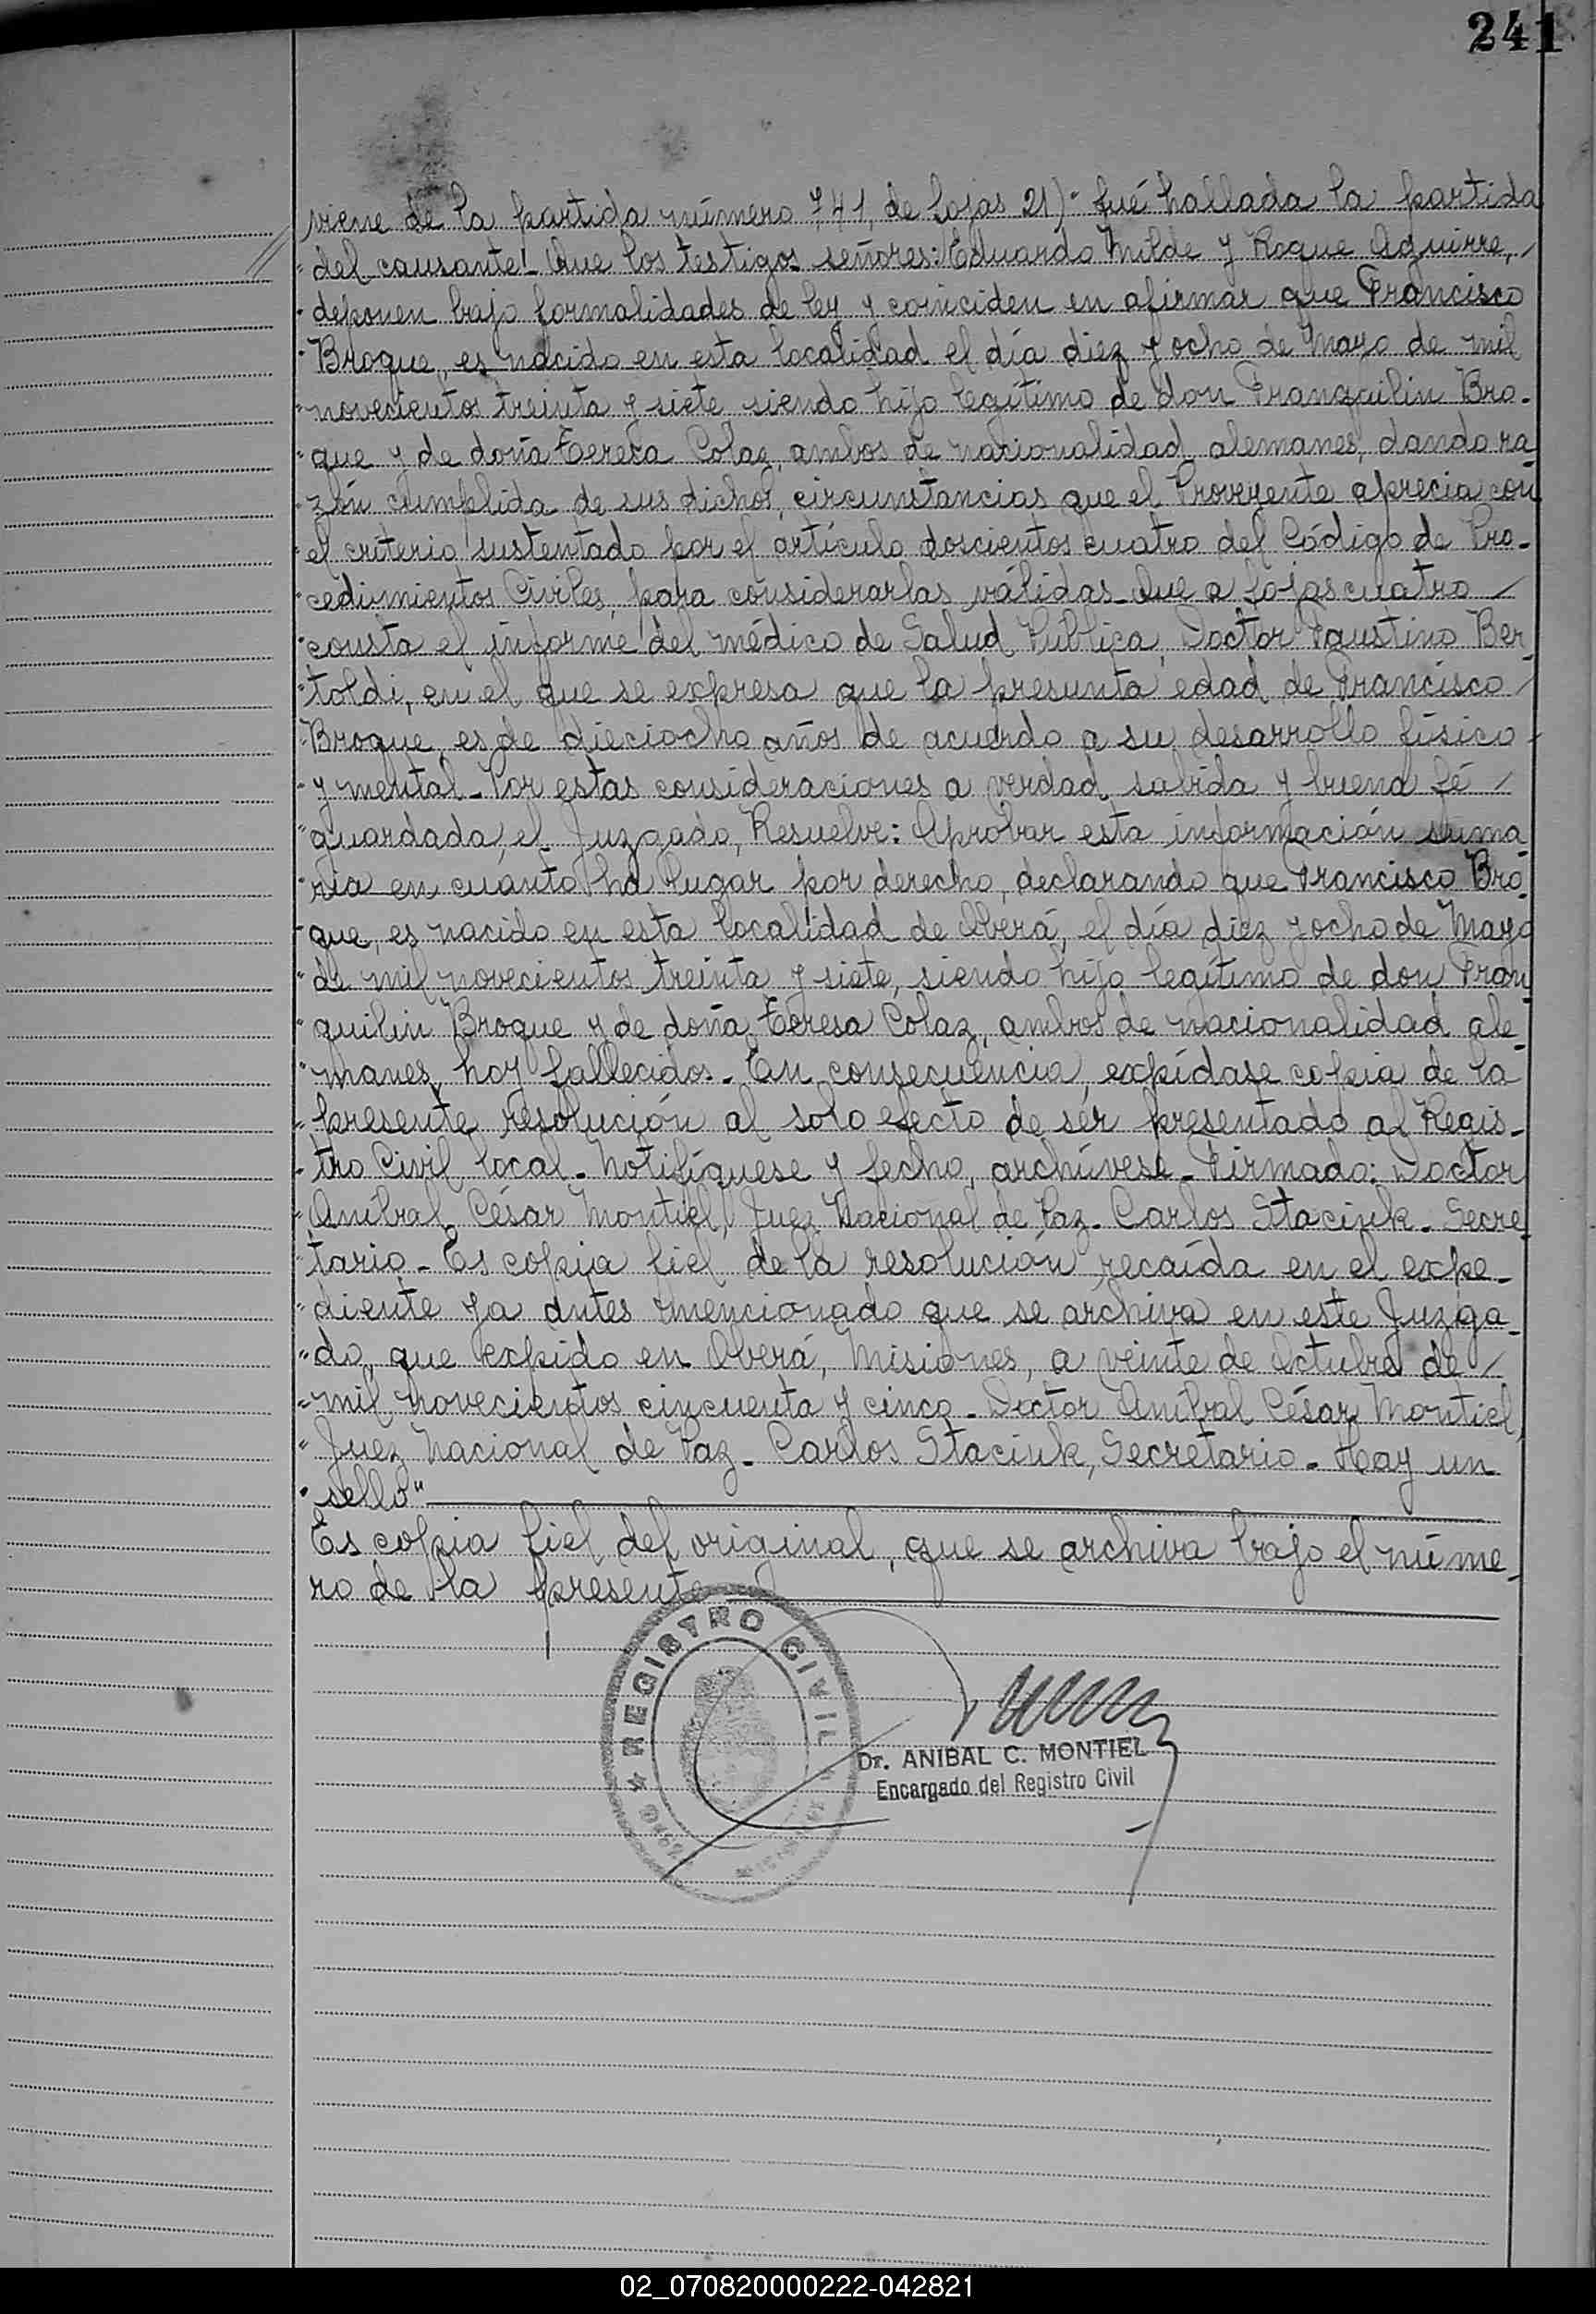 241
viene de la partida número 741, de fojas 21)" fué hallada la partida
" del causante! Que los testigos señores: Eduardo Milde y Roque Aguirre,
" deponen bajo formalidades de ley y coinciden en afirmar que Francisco
" Broque, es nacido en esta localidad el día diez y ocho de Mayo de mil
" novecientos treinta y siete siendo hijo legítimo de don Franquilin Bro-
" que y de doña Teresa Colaz, ambos de nacionalidad alemanes, dando ra
" zón cumplida de sus dichos, circunstancias que el Proveyente aprecia con
" el criterio sustentado por el artículo doscientos cuatro del Código de Pro-
" cedimientos Civiles, para considerarlas válidas_Que a fojas cuatro
" consta el informe del médico de Salud Pública, Doctor Faustino Ber
" toldi, en el que se expresa que la presunta edad de Francisco
" Broque, es de dieciocho años de acuerdo a su desarrollo físico
" y mental_Por estas consideraciones a verdad sabida y buena fé
" guardada, el Juzgado, Resuelve: Aprobar esta información suma
" ria en cuanto ha lugar por derecho, declarando que Francisco Bro
" que, es nacido en esta localidad de Oberá, el día diez y ocho de Mayo
" de mil novecientos treinta y siete, siendo hijo legítimo de don Fran
" quilin Broque y de doña Teresa Colaz, ambos de nacionalidad ale
" manes, hoy fallecidos_En consecuencia, expídase copia de la
" presente resolución al solo efecto de sér presentado al Regis-
" tro Civil local_Notifíquese y fecho, archívese_Firmado: Doctor
" Aníbal César Montiel, Juez Nacional de Paz_Carlos Staciuk_Secre
" tario_Es copia fiel de la resolución recaída en el expe-
" diente ya antes mencionado que se archiva en este Juzga-
" do, que expido en Oberá, Misiones, a veinte de Octubre de
" mil novecientos cincuenta y cinco_Doctor Aníbal César Montiel,
" Juez Nacional de Paz_Carlos Staciuk, Secretario_Hay un
" sello"
Es copia fiel del original, que se archiva bajo el núme-
ro de la presente
REGISTRO CIVIL
Dr. ANIBAL C. MONTIEL
Encargado del Registro Civil
02_070820000222-042821